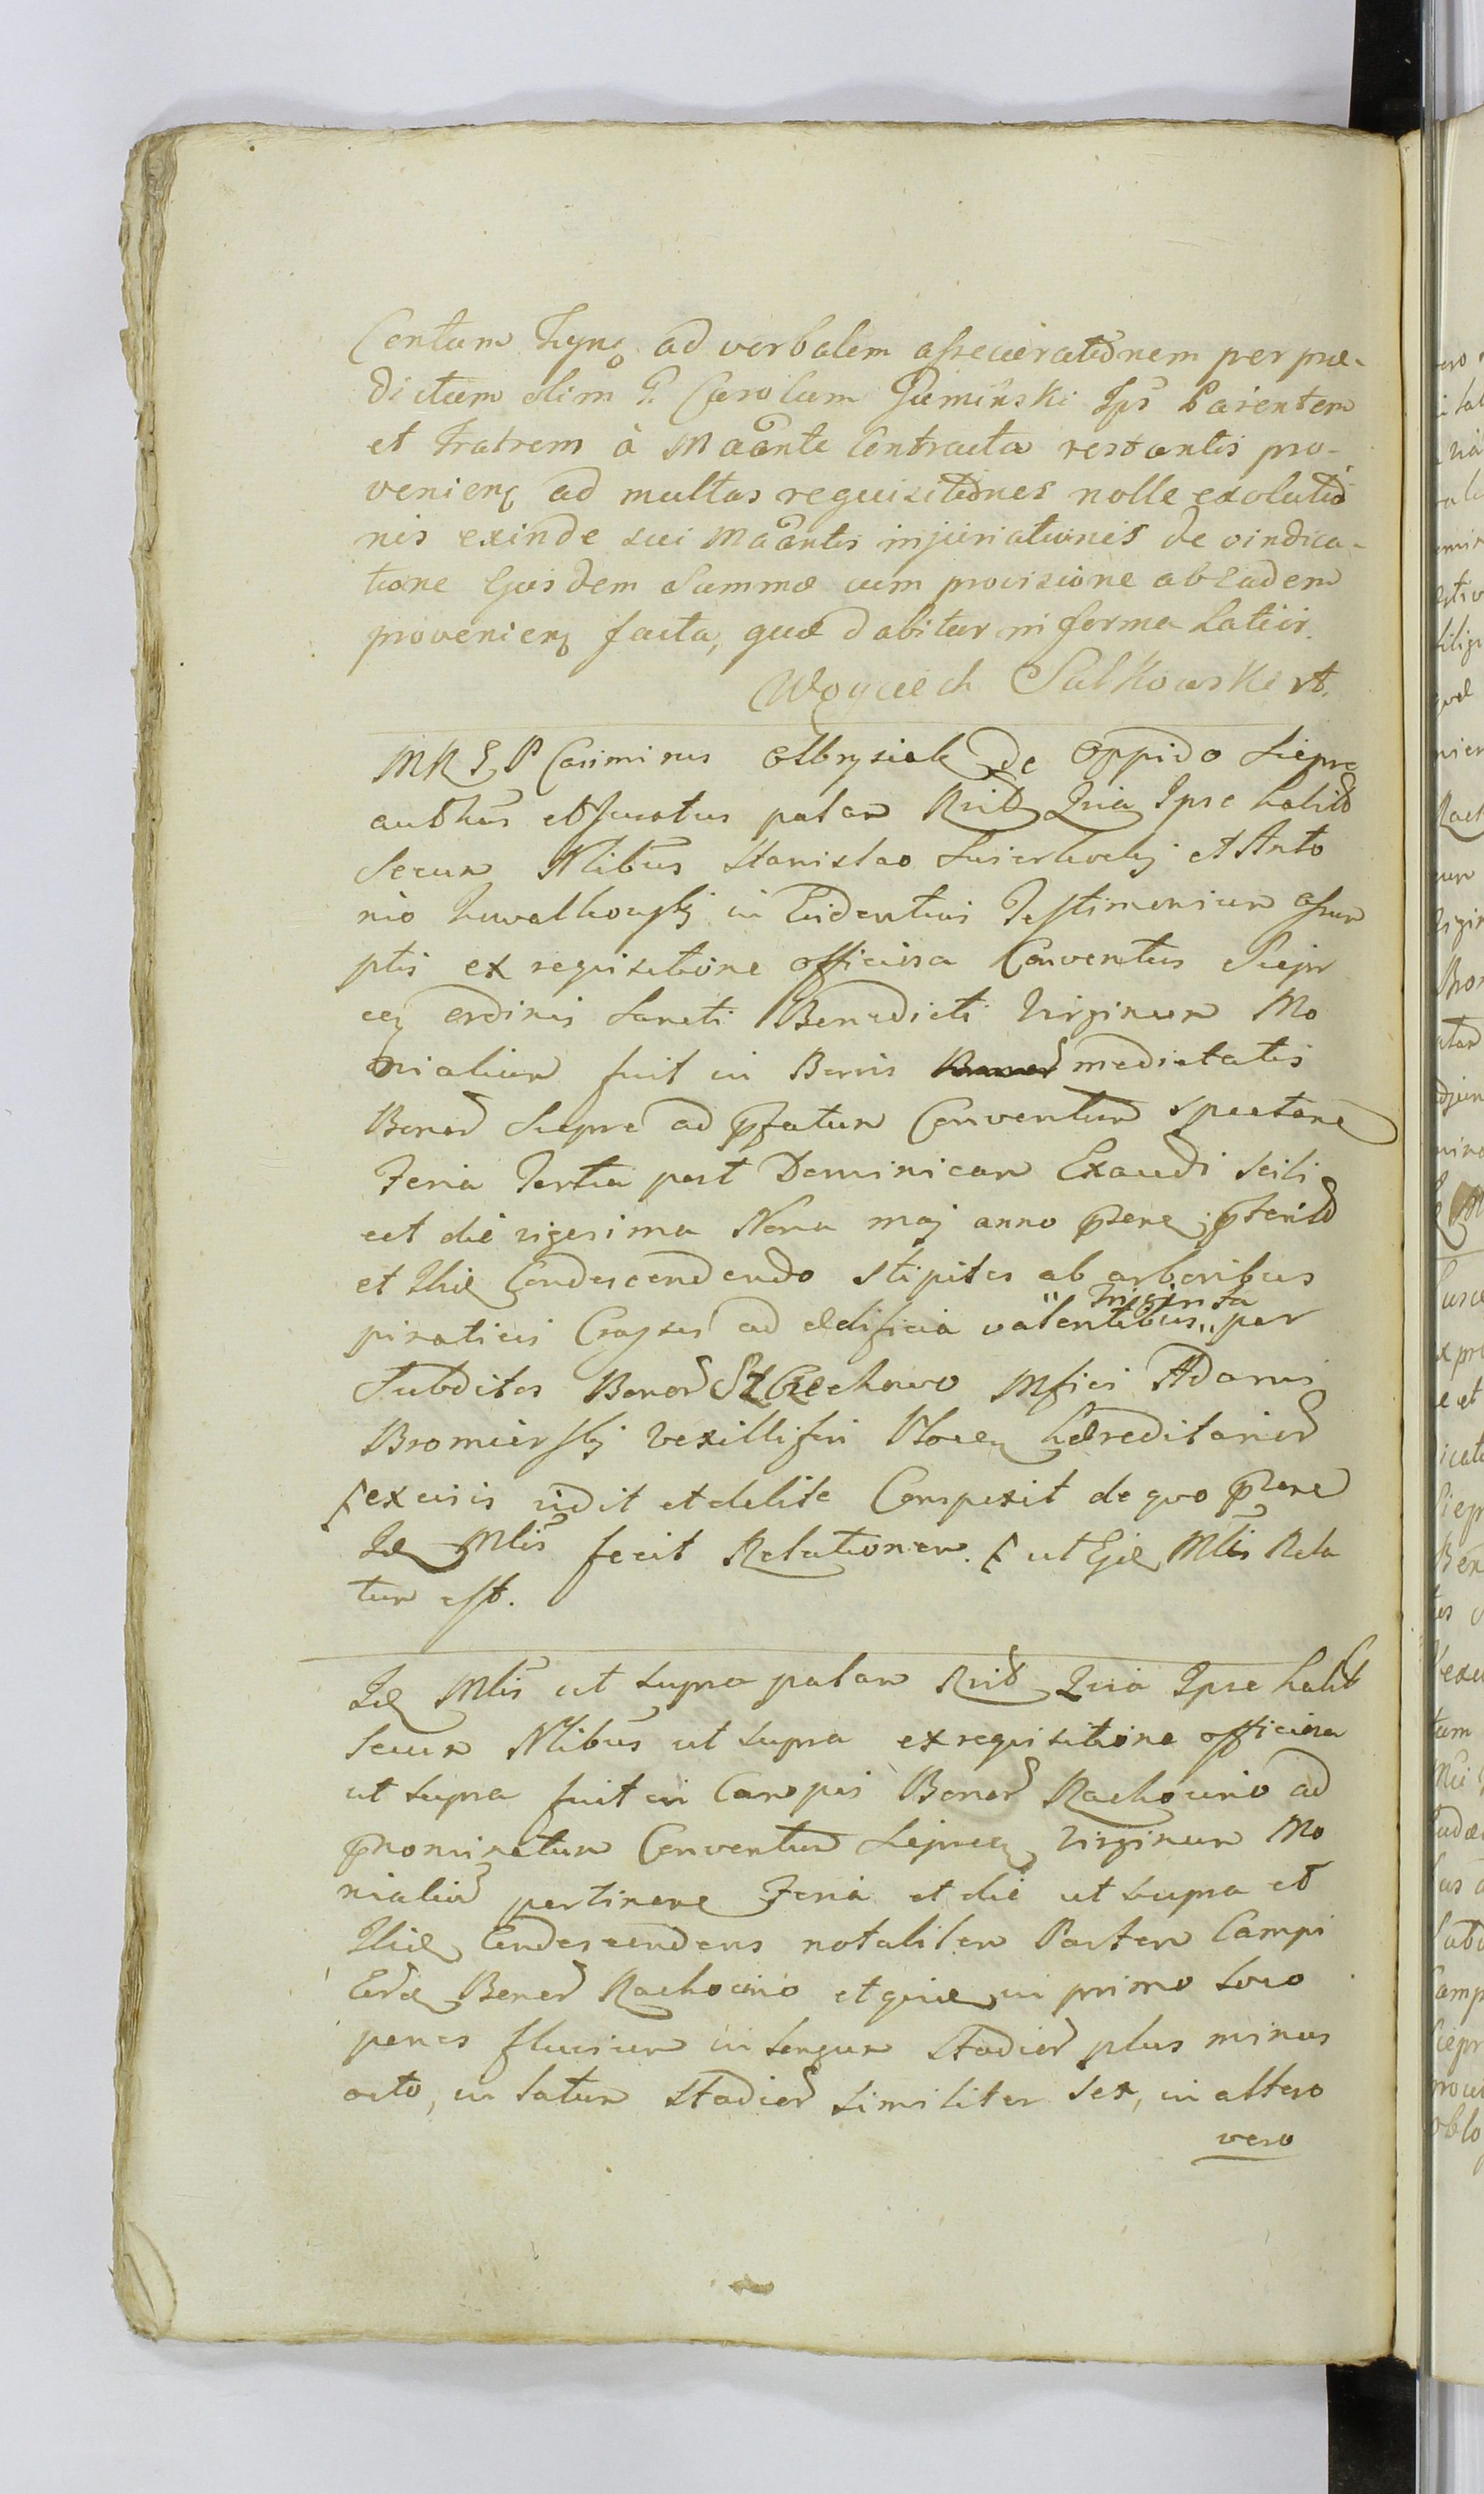 Centum Tynf ad verbalem assecurationem per præ-
dictum olim G. Carolum Guminski Ips Parentem
et Fratrem à Maante Contracta restantis pro-
venienq ad multas requisitiones nolle exolutio
nis exinde sui Maantis injuriationis de vindica-
tione Ejusdem Summæ cum provisione ab Eadem
provenienq facta, quæ dabitur in forma Latior.
Woyciech Sulkowski
Casimirus Olbrysiak de Oppido Sierpc
authus et Juratus palam Quia Ipse habito
Secum Nlibus Stanislao et Anto
nio in Evidentius Testimonium assum
ptis ex requisitione officiosa Conventus Sierpr
ceq ordinis Sancti Benedicti Virginum Mo
nialium fuit in Bonis medietatis
Bonor Sierpc ad pfatum Conventum spectane
Feria Tertia post Dominicam Exaudi scili
cet die vigesima Nona maj anno psene pterito
et Ibid Condescendendo stipites ab arboribus
pinaticis ad ædificia valentibus " Triginta " per
Subditos Bonor Szczechowo Mfici Adami
Bromierskj Vexilliferi Plocen hæreditarior
excisis vidit et debite Conspexit de quo psene
Id Mlis fecit Relationem. ut Ejd Mlis Rela
tum est.
Id Mlis ut supra palam Quia Ipse habit
Secum Nlibus ut supra ex requisitione officiosa
ut supra fuit in Campis Bonor Rachocino ad
pnominatum Conventum Sieprceq Virginum Mo
nialium pertinene Feria et die ut supra et
Ibid Condescendens notabilem Partem Campi
Eord Bonor Rachocino et quid in primo Loco
penes fluvium in longum Stadior plus minus
octo, in latum Stadior similiter Sex, in altero
vero